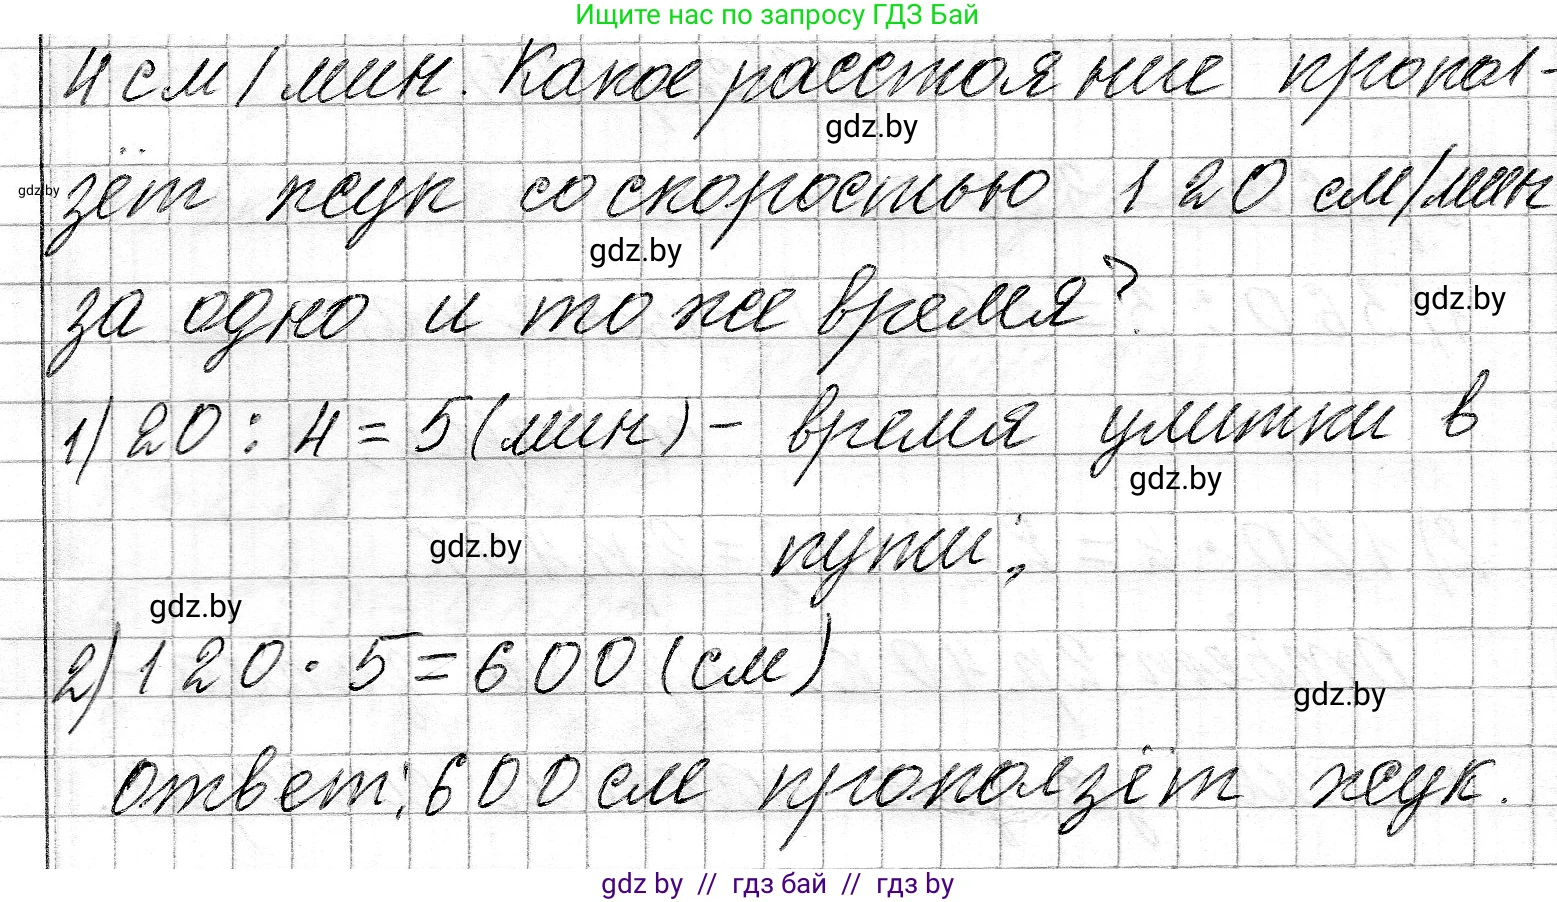 Ищите нас по запросу ГДЗ Бай
4 см/мин. Какое расстояние пропол-
gdz.by
gdz.by
зёт жук со скоростью 120 см/мин
gdz.by
за одно и то же время?
gdz.by
1) 20 : 4 = 5 (мин) - время улитки в
gdz.by
gdz.by
пути;
gdz.by
2) 120 · 5 = 600 (см)
gdz.by
ответ: 600 см проползёт жук.
gdz by // гдз бай // гдз by